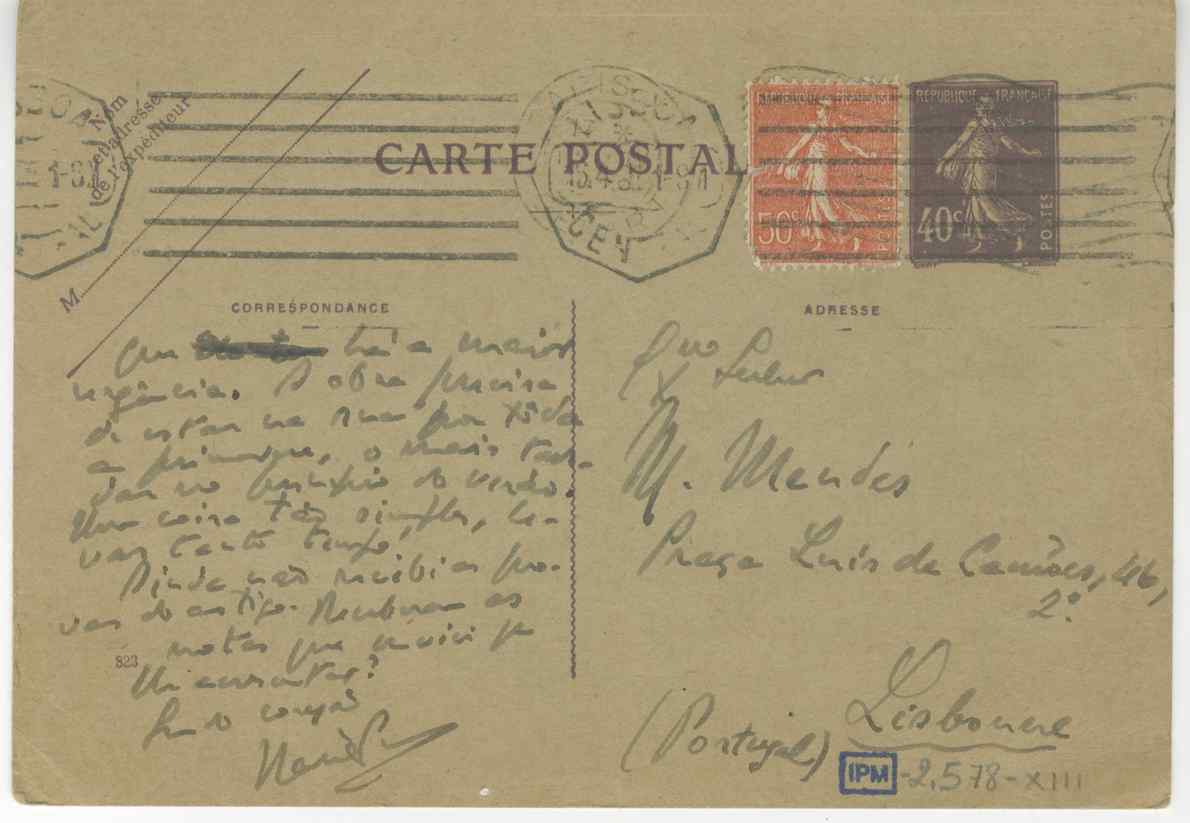 Nom
et adresse
de l'expéditeur
M
CARTE POSTALE
REPUBLIQUE FRANÇAISE
50c
POSTES
REPUBLIQUE FRANÇAISE
40c
POSTES
CORRESPONDANCE
há a maior
urgência. A obra precisa
de estar na rua por tôda
a primavera, o mais tar-
dar no princípio do verão.
Uma coisa tão simples, le-
var tanto tempo,
Ainda não recebi as pro-
vas do artigo. Receberam as
notas que enviei p
lhe acrescentar?
Seu do coração
823
ADRESSE
M. Mendes
Praça Luís de Camões, 46,
2º
Lisbonne
(Portugal)
IPM -2.578-XIII